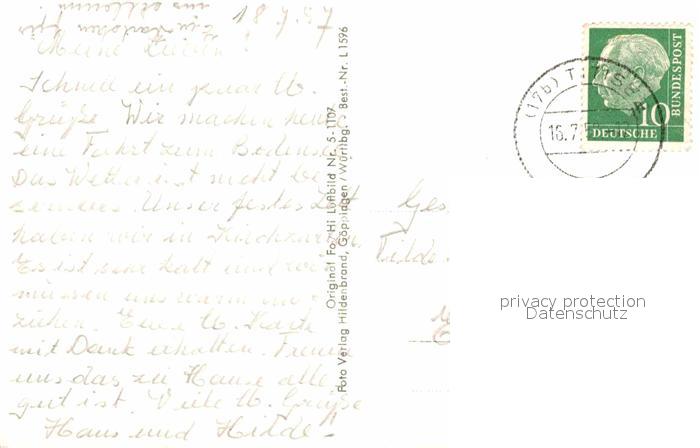 18.7.57
Meine Lieben!
Schnell ein paar lb.
Grüße. Wir machen heute
eine Fahrt zum Bodensee
Das Wetter ist nicht be
sonders. Unser festes Zelt
haben wir in Kirchzarten.
Es ist sehr kalt und wir
müssen uns warm an-
ziehen. Eure lb. Karte
mit Dank erhalten. Freue
uns das zu Hause alles
gut ist. Viele lb. Grüße
Hans und Hilde
Original Fo-Hi Luftbild Nr. 5-1107
Foto Verlag Hildenbrand, Göppingen/Württbg. Best.-Nr. L1596
(17b) TITISEE
16.7.
10
DEUTSCHE
BUNDESPOST
Ges
Tilde
privacy protection
Datenschutz